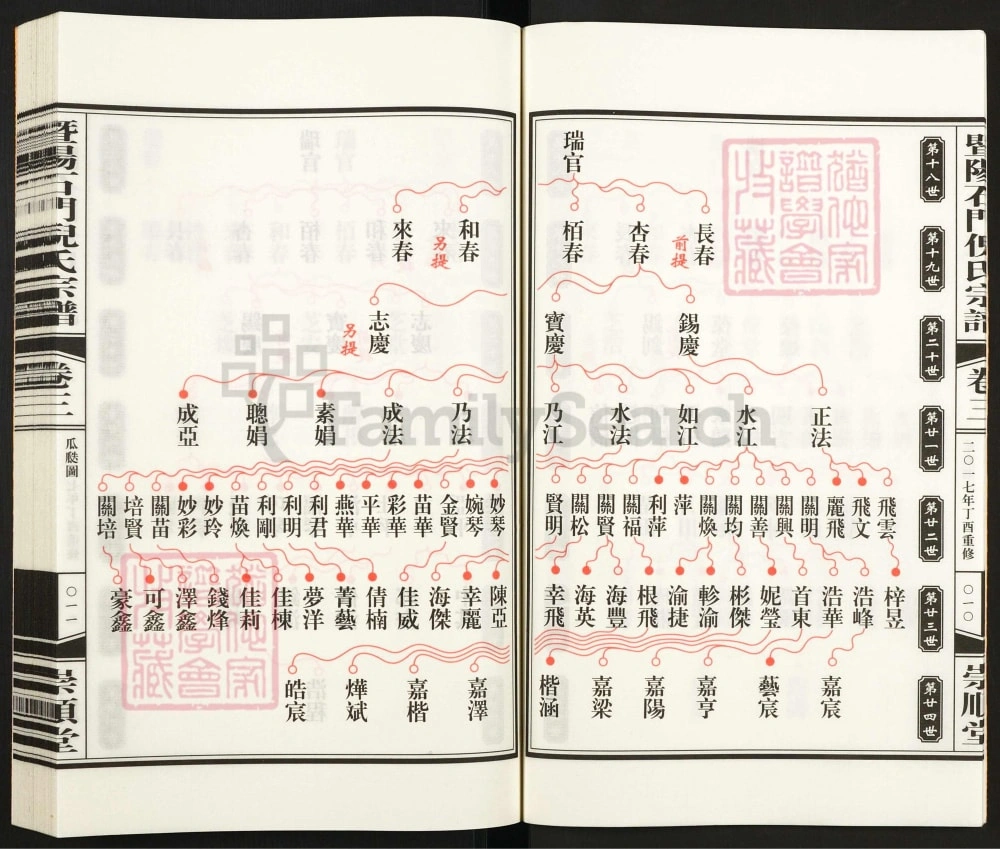 暨陽石門倪氏宗譜
卷三
二〇一七年丁酉重修
〇一〇
崇順堂
第十八世
第十九世
第二十世
第廿一世
第廿二世
第廿三世
第廿四世
瑞官
長春
前提
杏春
栢春
錫慶
寶慶
正法
水江
如江
水法
乃江
飛雲
飛文
麗飛
關明
關興
關善
關均
關煥
萍
利萍
關福
關賢
關松
賢明
梓昱
浩峰
浩華
首東
妮瑩
彬傑
軫渝
渝捷
根飛
海豐
海英
幸飛
嘉宸
藝宸
嘉亨
嘉陽
嘉梁
楷涵
和春
另提
來春
志慶
另提
乃法
成法
素娟
聰娟
成亞
妙琴
婉琴
金賢
苗華
彩華
平華
燕華
利君
利明
利剛
苗煥
妙玲
妙彩
關苗
培賢
關培
陳亞
幸麗
海傑
佳威
倩楠
菁藝
夢洋
佳棟
佳莉
錢烽
澤鑫
可鑫
豪鑫
嘉澤
嘉楷
燁斌
皓宸
暨陽石門倪氏宗譜
卷三
瓜瓞圖
〇一一
崇順堂
FamilySearch